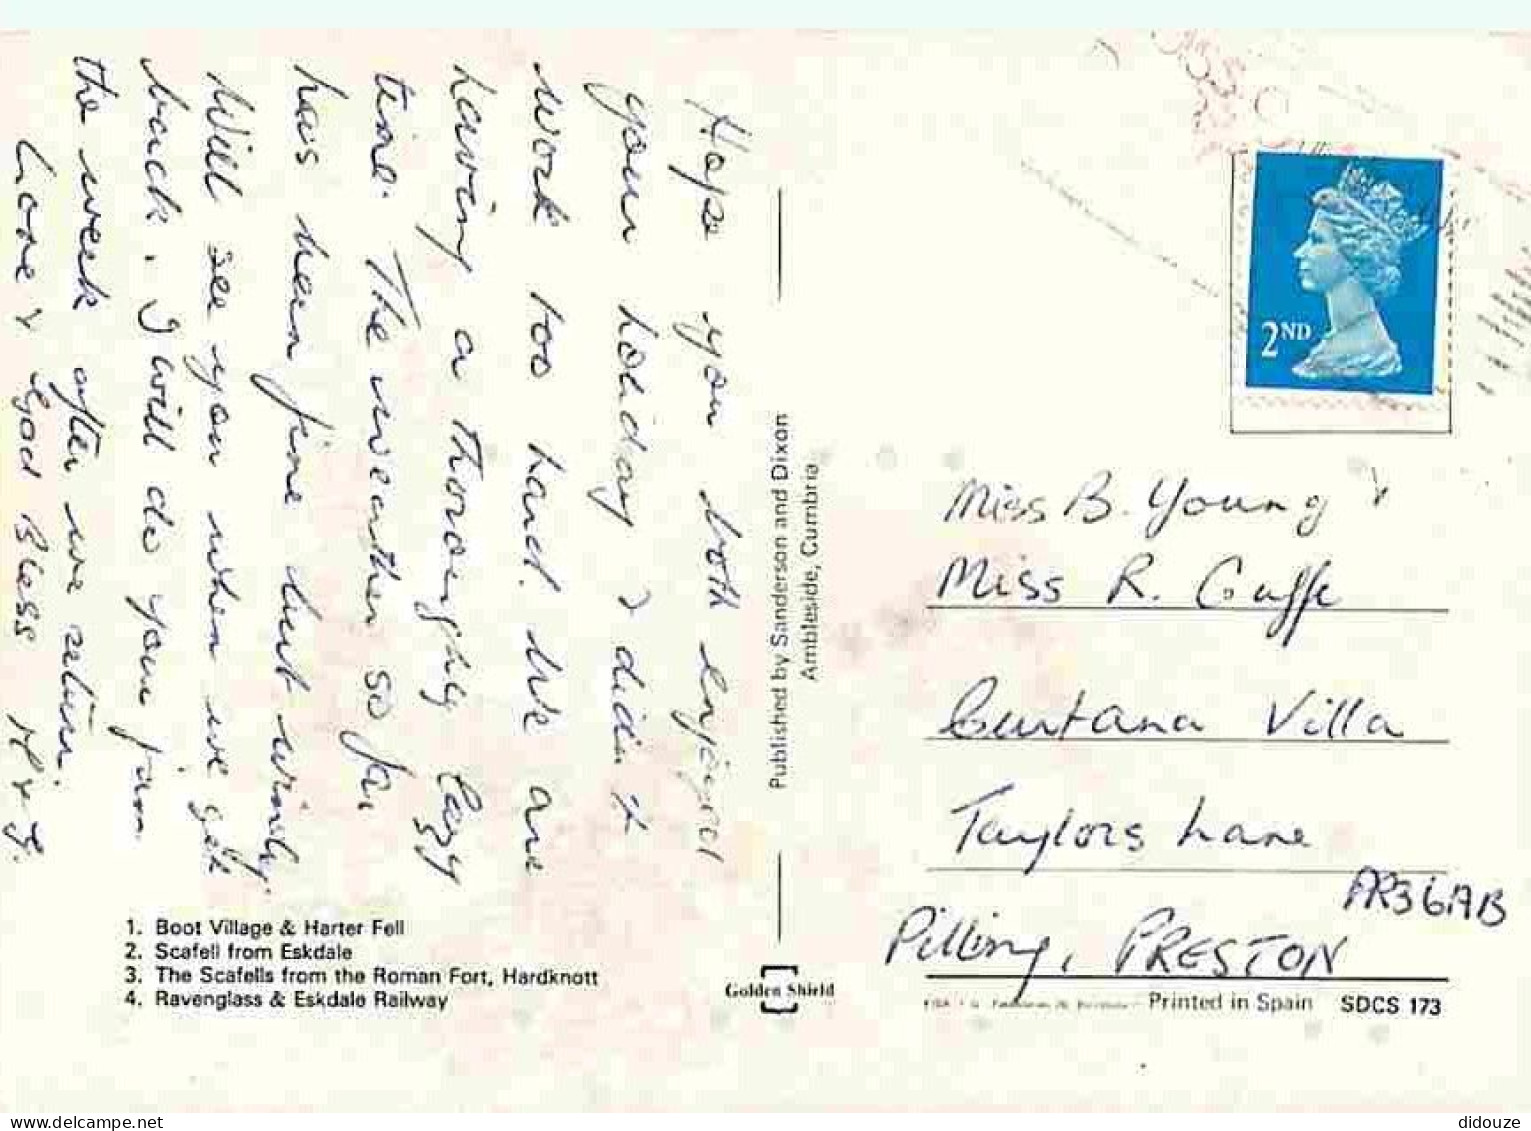 Hope you both enjoyed
your holiday & didn't
work too hard. We are
having a thoroughly lazy
time. The weather so far
has been fine but windy.
Will see you when we get
back. I will do you from
the week after we return.
Love & God Bless
1. Boot Village & Harter Fell
2. Scafell from Eskdale
3. The Scafells from the Roman Fort, Hardknott
4. Ravenglass & Eskdale Railway
Published by Sanderson and Dixon
Ambleside, Cumbria
Golden Shield
2ND
Miss B. Young &
Miss R. Cuffe
Curtana Villa
Taylors Lane
Pilling, PRESTON
PR3 6AB
Printed in Spain SDCS 173
didouze